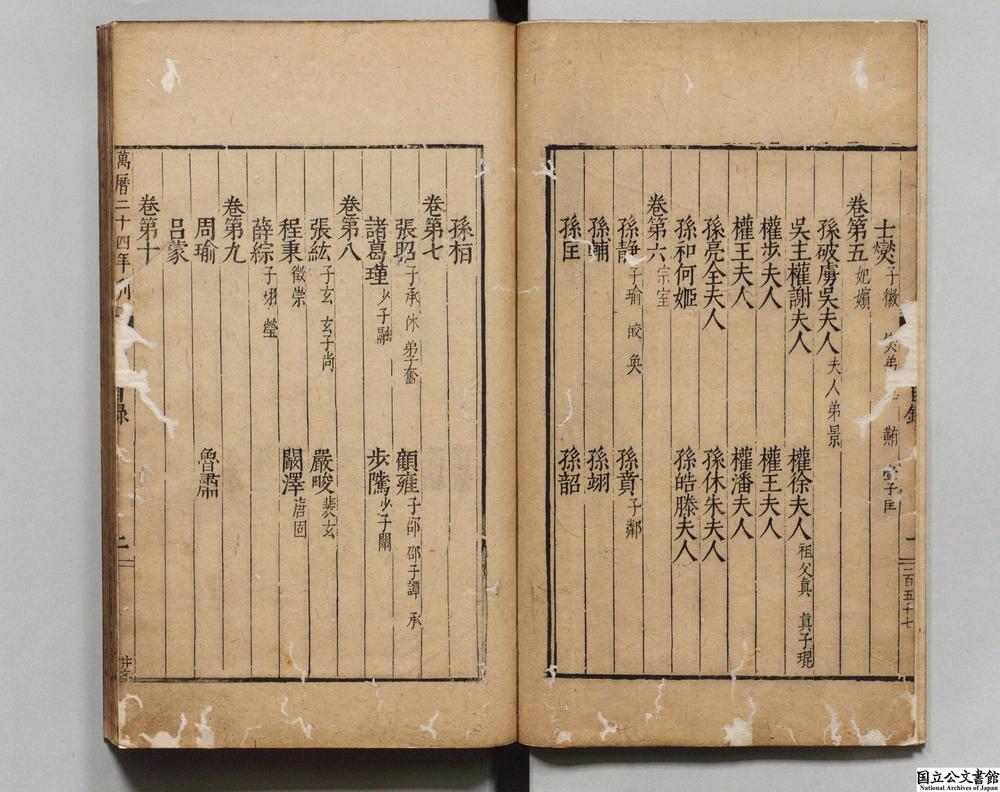 士燮 子徽
卷第五 妃嬪
孫破虜吳夫人 夫人弟景
吳主權謝夫人 權徐夫人 祖父真 真子琨
權步夫人 權王夫人
權王夫人 權潘夫人
孫亮全夫人 孫休朱夫人
孫和何姬 孫皓滕夫人
卷第六 宗室
孫靜 子瑜 皎 奐 孫賁 子鄰
孫輔 孫翊
孫匡 孫韶
一百五十七
孫桓
卷第七
張昭 子承 休 弟子奮 顧雍 子邵 邵子譚 承
諸葛瑾 少子融 步騭 少子闡
卷第八
張紘 子玄 玄子尚 嚴畯 裴玄
程秉 徵崇 闞澤 唐固
薛綜 子珝 瑩
卷第九
周瑜 魯肅
呂蒙
卷第十
萬曆二十四年刊
目錄 二
国立公文書館
National Archives of Japan